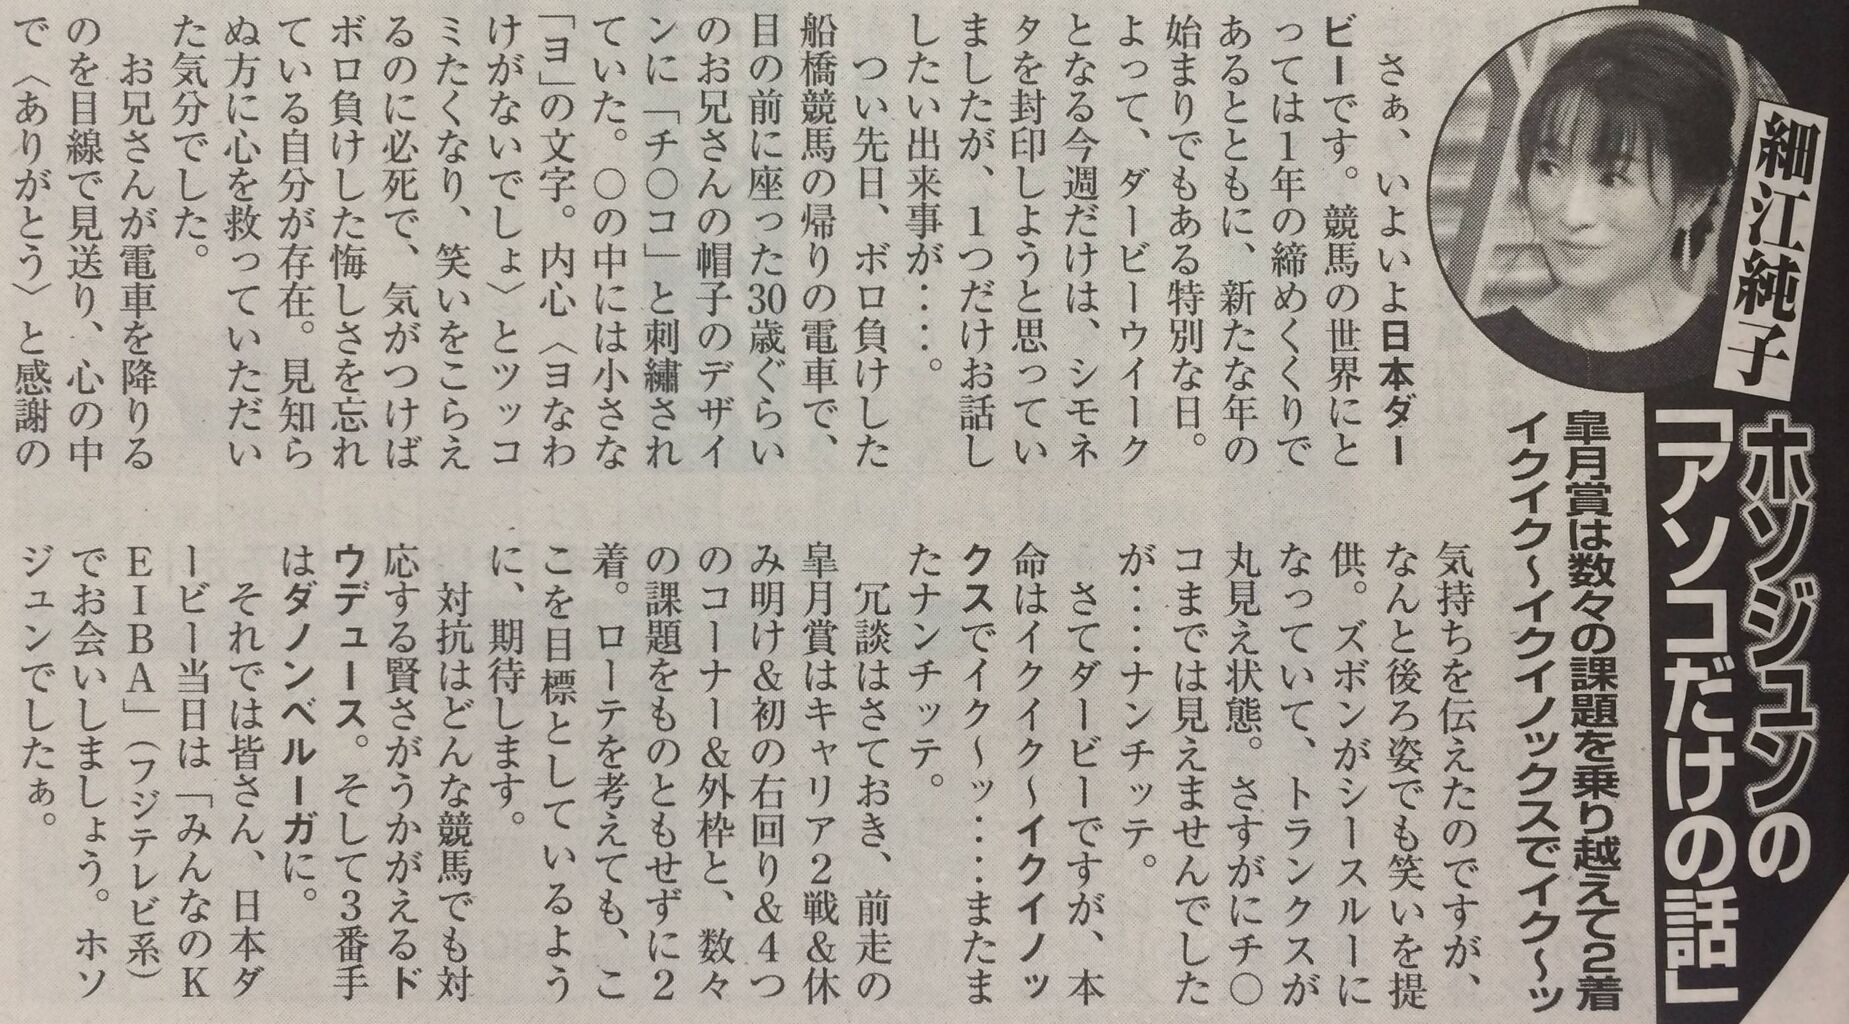 細江純子
ホソジュンの
「アソコだけの話」
皐月賞は数々の課題を乗り越えて2着
イクイク〜イクイノックスでイク〜ッ
さぁ、いよいよ日本ダー
ビーです。競馬の世界にと
っては1年の締めくくりで
あるとともに、新たな年の
始まりでもある特別な日。
よって、ダービーウイーク
となる今週だけは、シモネ
タを封印しようと思ってい
ましたが、1つだけお話し
したい出来事が‥‥。
つい先日、ボロ負けした
船橋競馬の帰りの電車で、
目の前に座った30歳ぐらい
のお兄さんの帽子のデザイ
ンに「チ○コ」と刺繡され
ていた。○の中には小さな
「ヨ」の文字。内心〈ヨなわ
けがないでしょ〉とツッコ
ミたくなり、笑いをこらえ
るのに必死で、気がつけば
ボロ負けした悔しさを忘れ
ている自分が存在。見知ら
ぬ方に心を救っていただい
た気分でした。
お兄さんが電車を降りる
のを目線で見送り、心の中
で〈ありがとう〉と感謝の
気持ちを伝えたのですが、
なんと後ろ姿でも笑いを提
供。ズボンがシースルーに
なっていて、トランクスが
丸見え状態。さすがにチ○
コまでは見えませんでした
が‥‥ナンチッテ。
さてダービーですが、本
命はイクイク〜イクイノッ
クスでイク〜ッ‥‥またま
たナンチッテ。
冗談はさておき、前走の
皐月賞はキャリア2戦&休
み明け&初の右回り&4つ
のコーナー&外枠と、数々
の課題をものともせずに2
着。ローテを考えても、こ
こを目標としているよう
に、期待します。
対抗はどんな競馬でも対
応する賢さがうかがえるド
ウデュース。そして3番手
はダノンベルーガに。
それでは皆さん、日本ダ
ービー当日は「みんなのK
EIBA」（フジテレビ系）
でお会いしましょう。ホソ
ジュンでしたぁ。